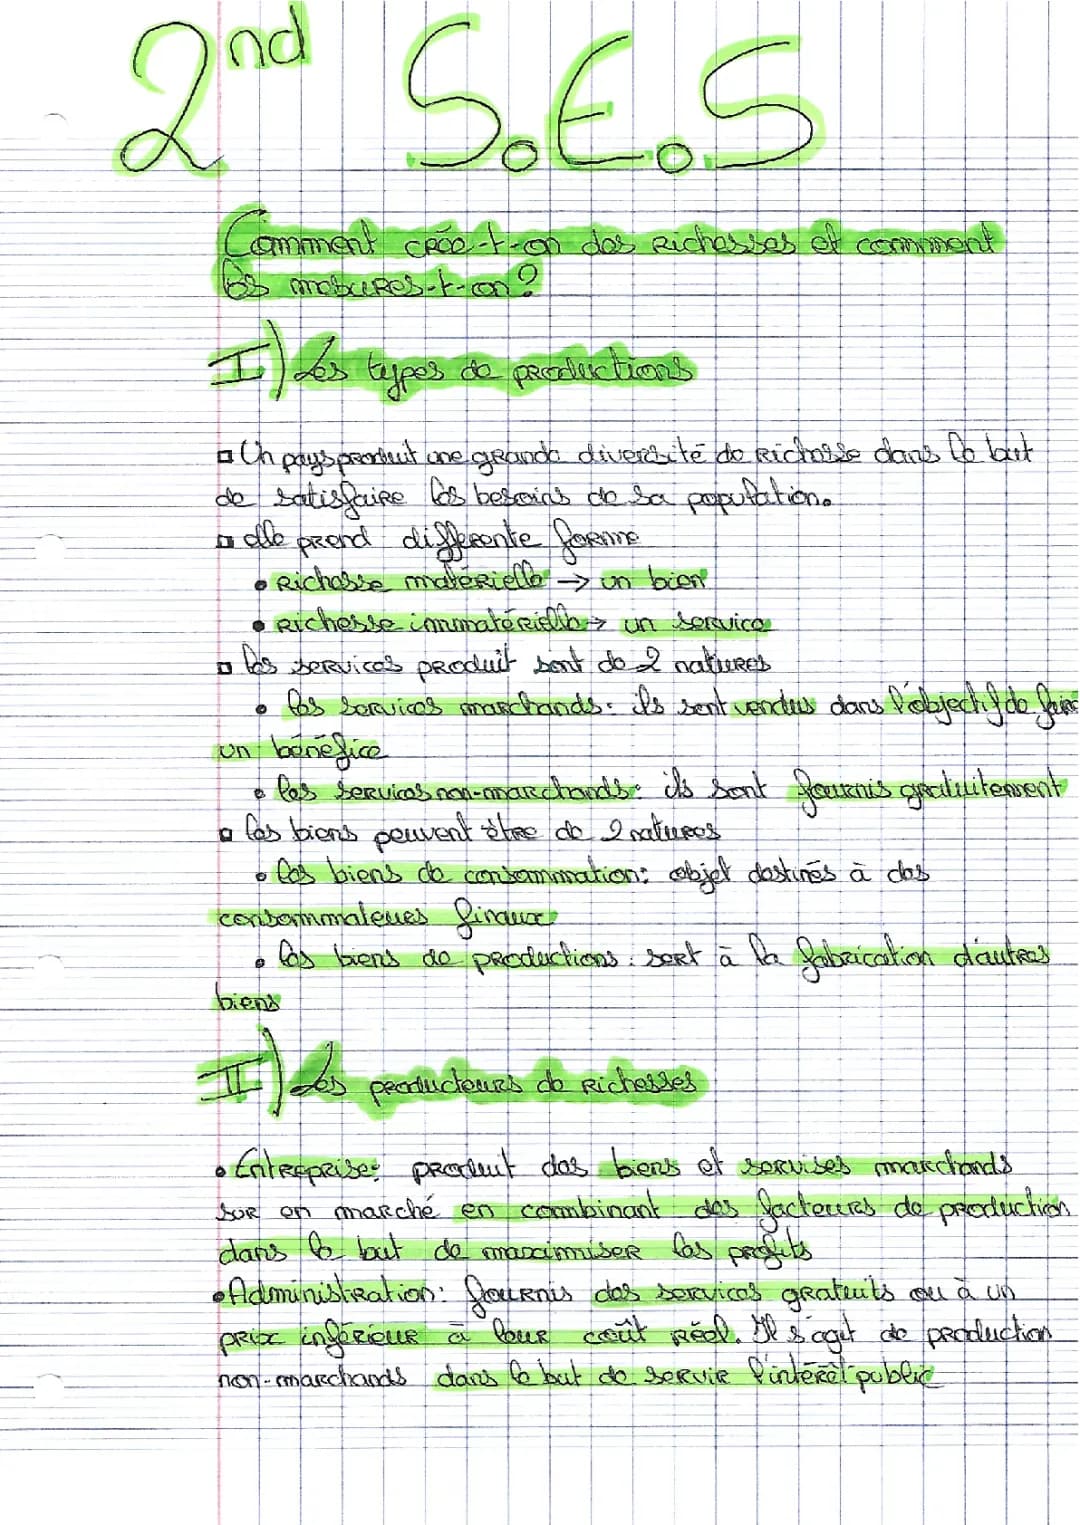 2nd S.E.S
Comment crée-t-on des Richesses et comment
les mesures-t-on?
I) Les types de productions
Un pays produit une grande diversité de Richesse dans le but
de satisfaire les besoins de sa population.
elle prend differente forme
• Richesse matérielle → un bien
• Richesse immatérielle → un service
les services produit sont de 2 natures
• les services marchands: ils sont vendus dans l'objectif de faire
un bénéfice
• les services non-marchands: ils sont fournis gratuitement
les biens peuvent être de 2 natures
• les biens de consommation: objet destinés à des
consommateurs finaux
• les biens de productions: sert à la fabrication d'autres
biens
II) Les producteurs de Richesses
• Entreprise: produit des biens et servises marchands
sur en marché en combinant des facteurs de production
dans le but de maximiser les profits
• Administration: fournis des services gratuits ou à un
prix inférieur à leur coût réel. Il s'agit de production
non-marchands dans le but de servir l'intérêt public